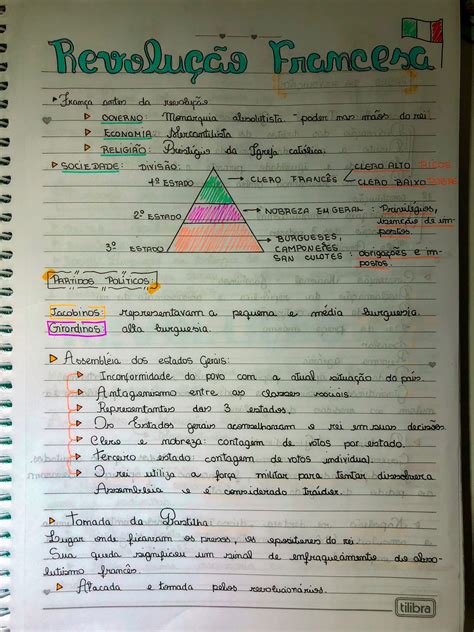 Revolução Francesa
França antes da revolução
GOVERNO: Monarquia absolutista - poder nas mãos do rei.
ECONOMIA: Mercantilista
RELIGIÃO: Prestígio da Igreja católica.
SOCIEDADE: DIVISÃO:
1º ESTADO → CLERO FRANCÊS
CLERO ALTO RICOS
CLERO BAIXO
2º ESTADO → NOBREZA EM GERAL: Privilégios, isenção de impostos.
3º ESTADO → BURGUESES, CAMPONESES SAN CULOTES: obrigações e impostos.
PARTIDOS POLÍTICOS:
Jacobinos: representavam a pequena e média burguesia.
Girondinos: alta burguesia.
Assembléia dos estados Gerais:
Inconformidade do povo com a atual situação do país.
Antagonismo entre as classes sociais.
Representantes dos 3 estados.
Os Estados gerais aconselhavam o rei em suas decisões.
Clero e nobreza: contagem de votos por estado.
Terceiro estado: contagem de votos individual.
O rei utiliza a força militar para tentar dissolver a
Assembleia e é considerado traidor.
Tomada da Bastilha:
Lugar onde ficavam os presos, os opositores do rei.
Sua queda significou um sinal de enfraquecimento do abso-
lutismo francês.
Atacada e tomada pelos revolucionários.
tilibra